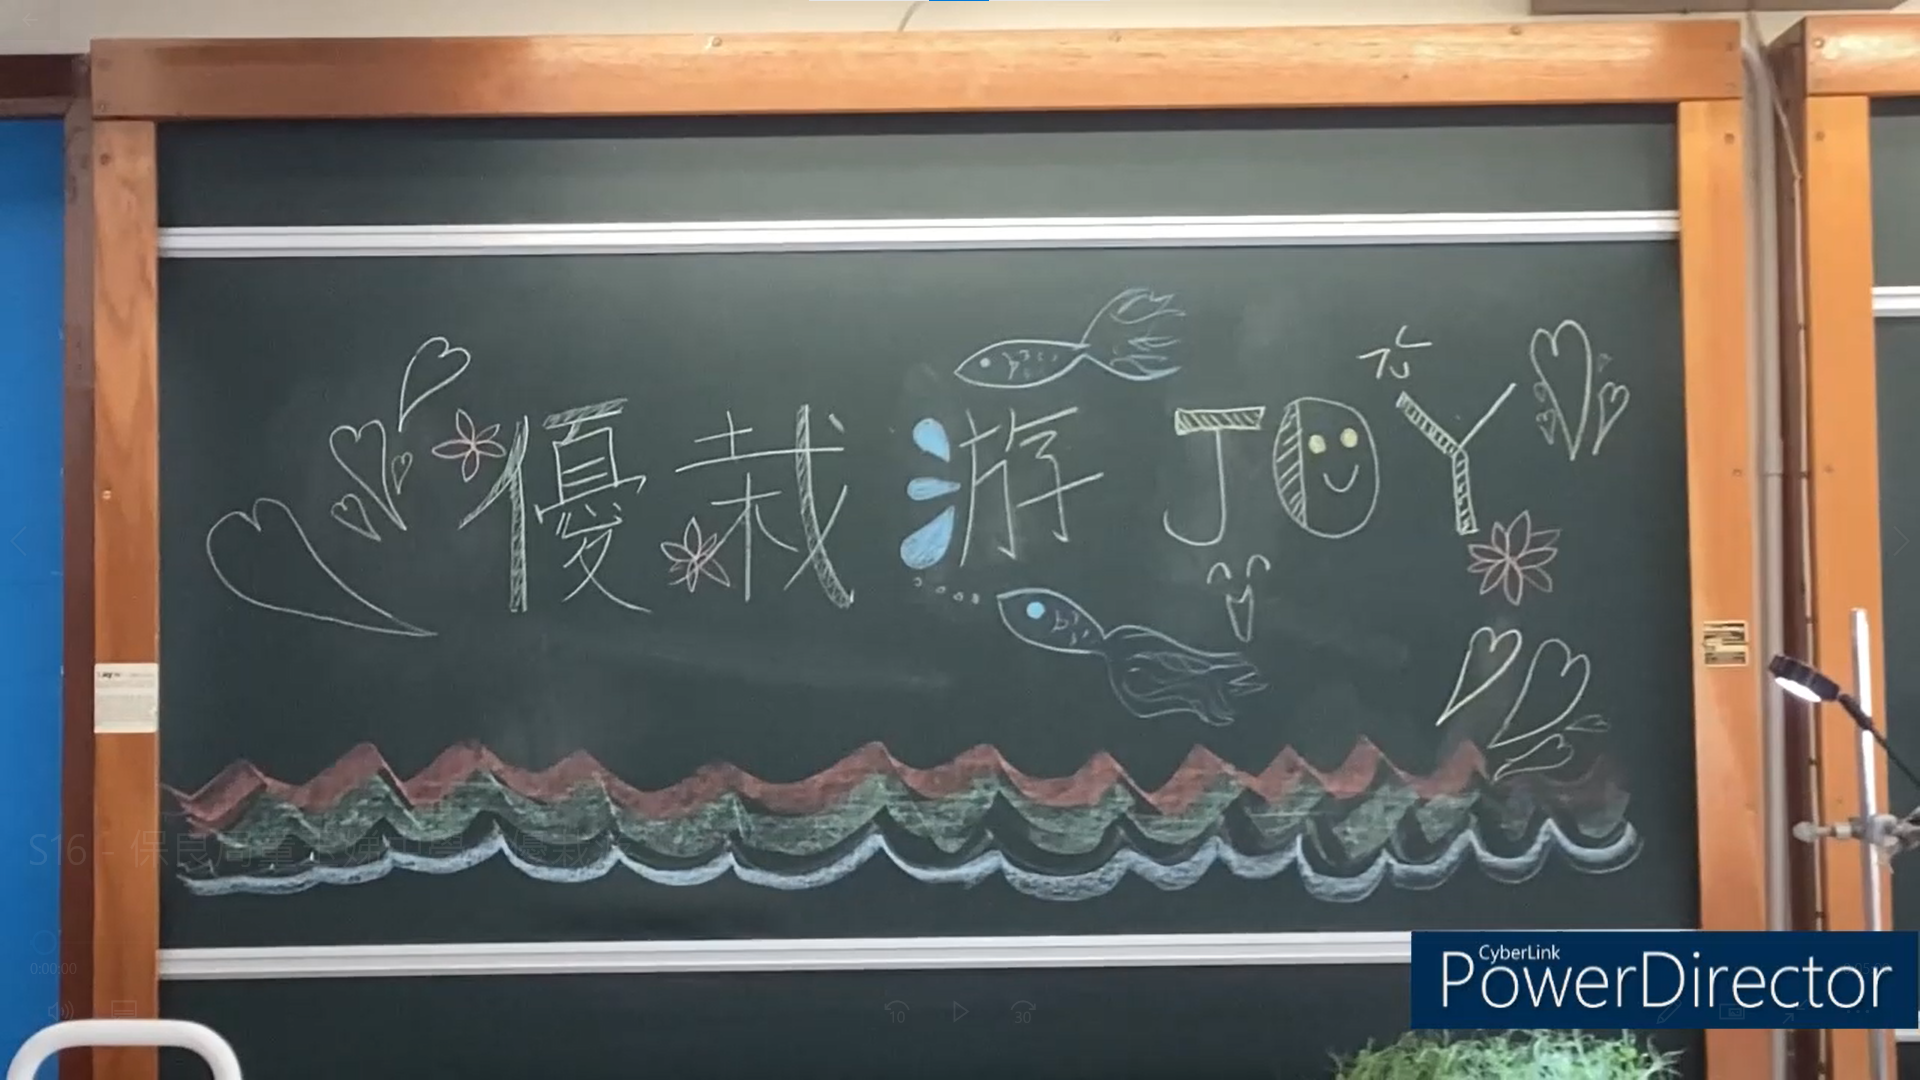 優栽游 JOY
S16 - 保良局董玉娣中學 - 優栽
0:00:00
10
30
CyberLink
PowerDirector